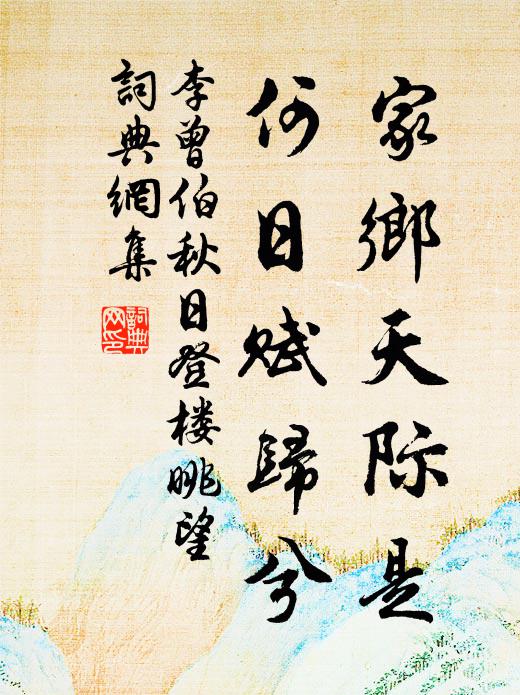 家鄉天际是
何日賦歸兮
李曾伯秋日登楼眺望
詞典網集
詞典网印